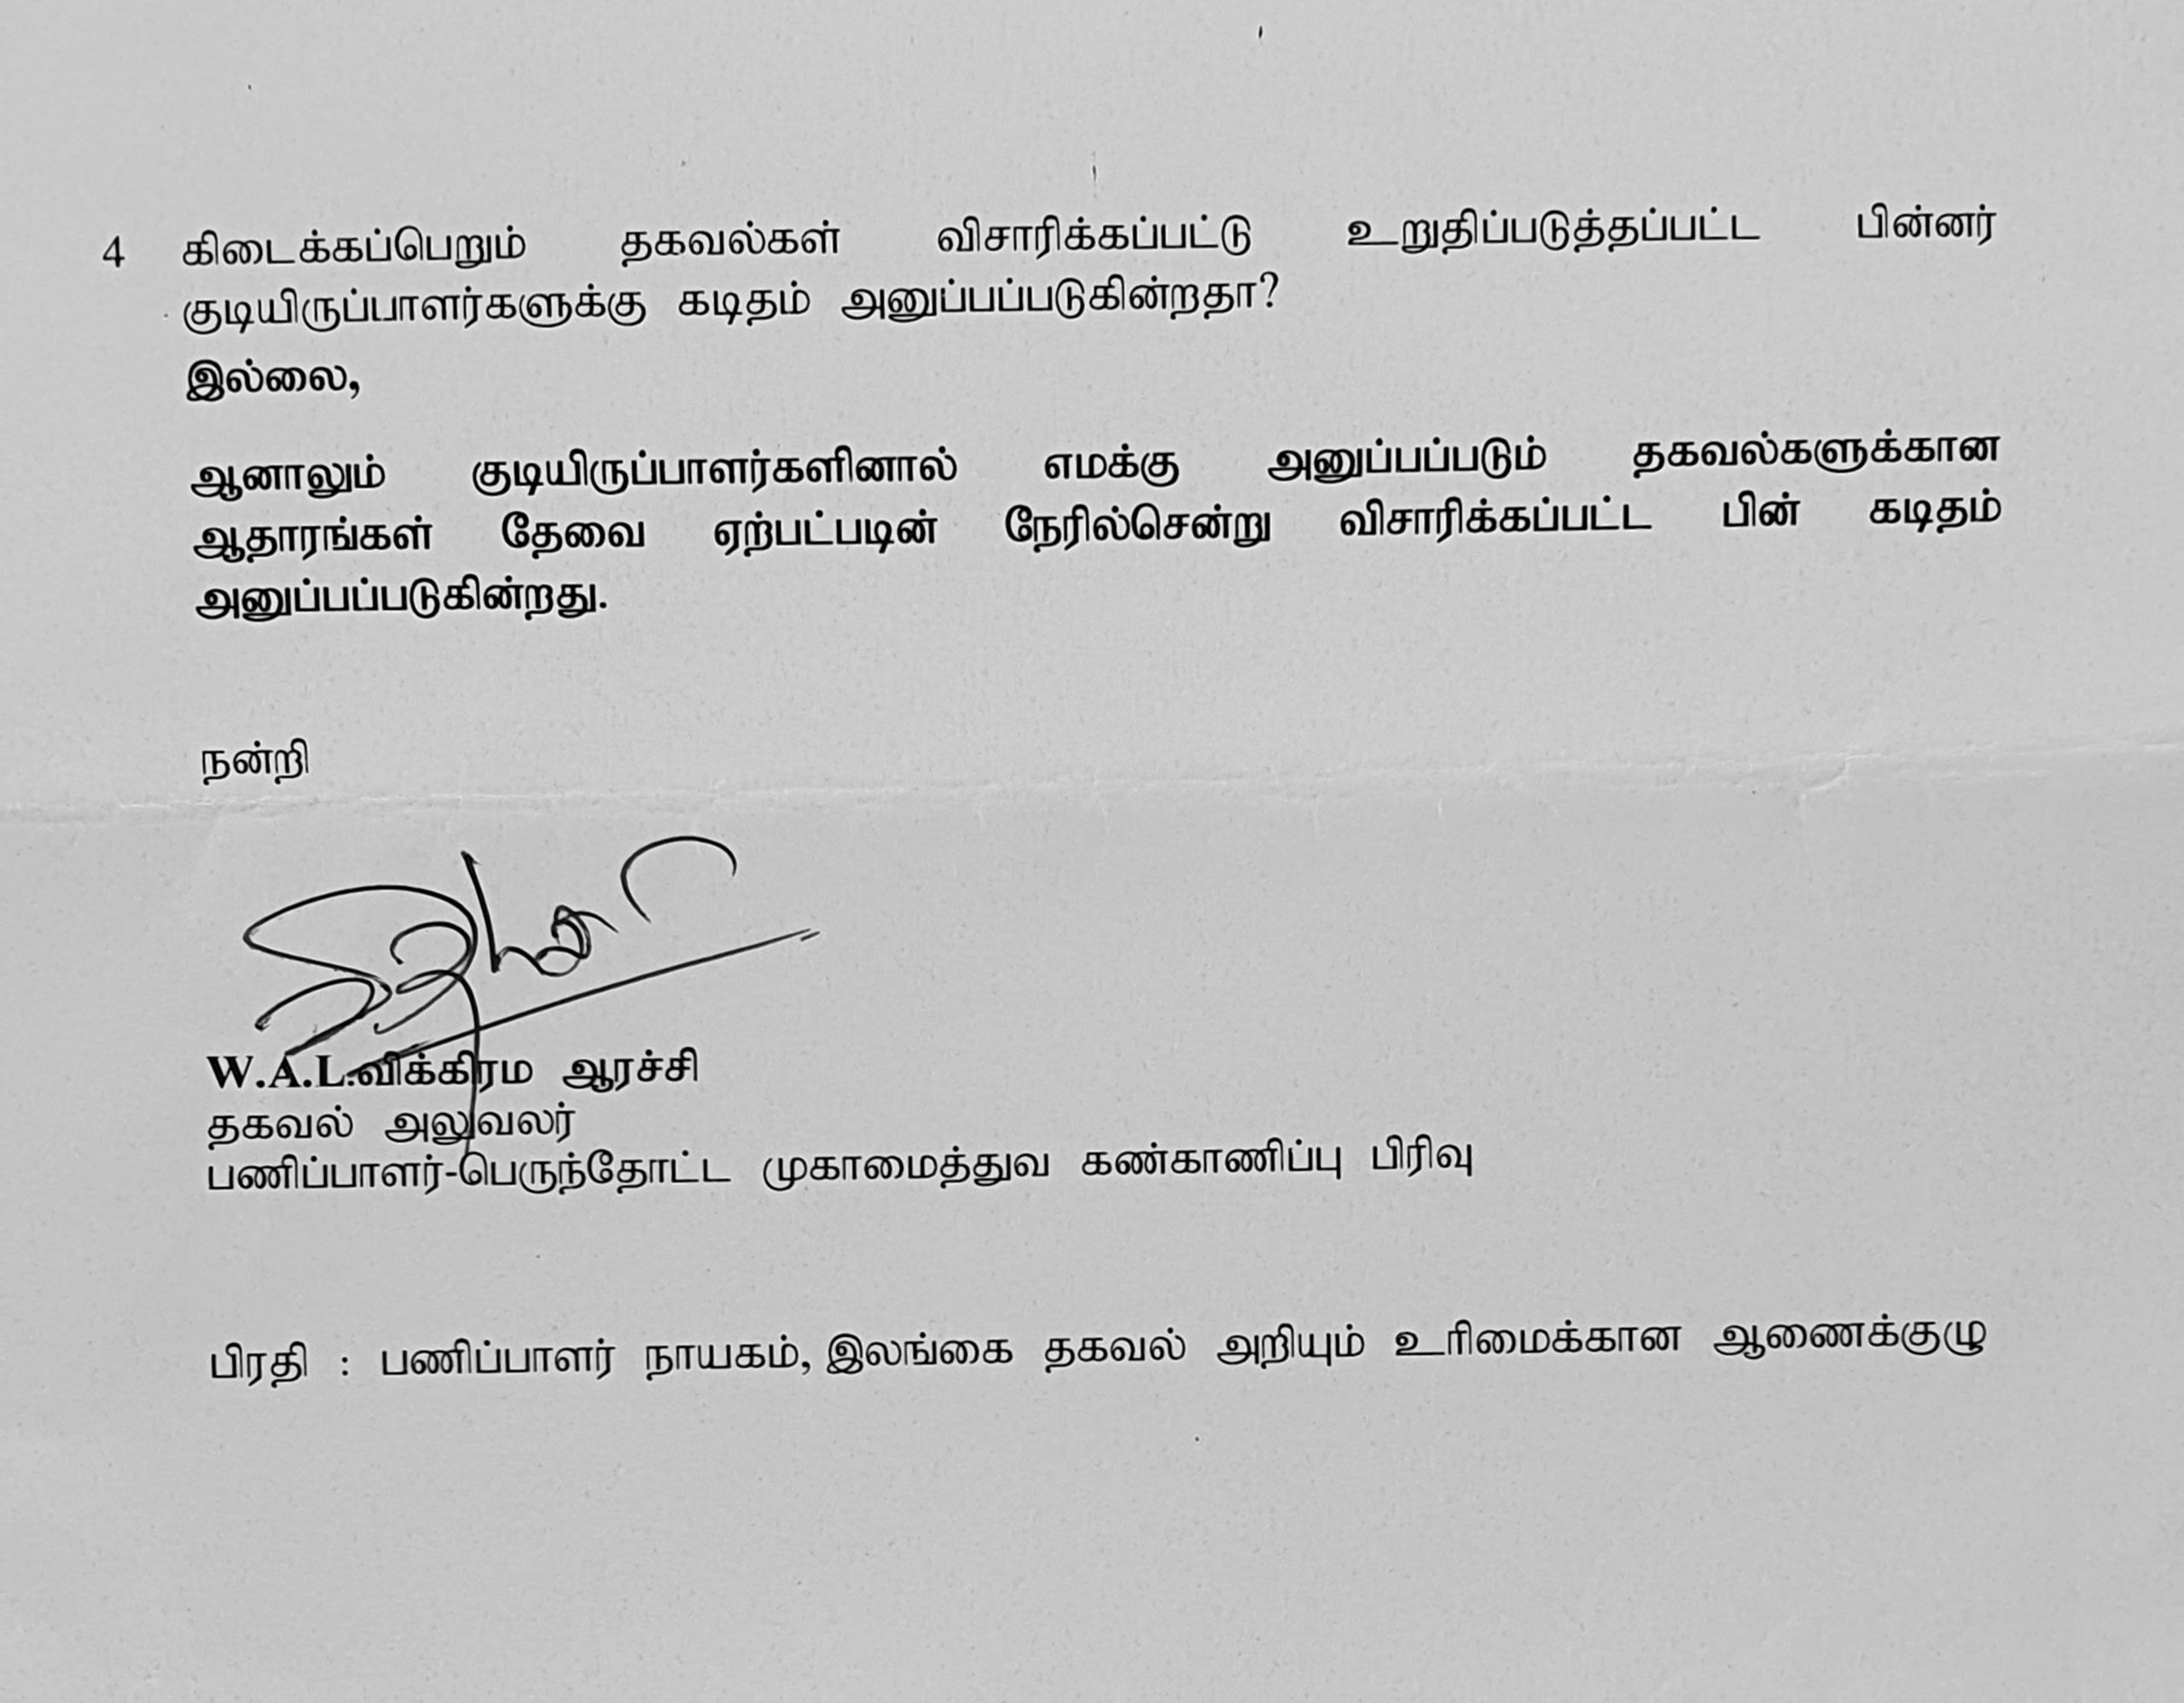 4 கிடைக்கப்பெறும் தகவல்கள் விசாரிக்கப்பட்டு உறுதிப்படுத்தப்பட்ட பின்னர்
குடியிருப்பாளர்களுக்கு கடிதம் அனுப்பப்படுகின்றதா?
இல்லை,
ஆனாலும் குடியிருப்பாளர்களினால் எமக்கு அனுப்பப்படும் தகவல்களுக்கான
ஆதாரங்கள் தேவை ஏற்பட்படின் நேரில்சென்று விசாரிக்கப்பட்ட பின் கடிதம்
அனுப்பப்படுகின்றது.
நன்றி
W.A.L.விக்கிரம ஆரச்சி
தகவல் அலுவலர்
பணிப்பாளர்-பெருந்தோட்ட முகாமைத்துவ கண்காணிப்பு பிரிவு
பிரதி : பணிப்பாளர் நாயகம், இலங்கை தகவல் அறியும் உரிமைக்கான ஆணைக்குழு